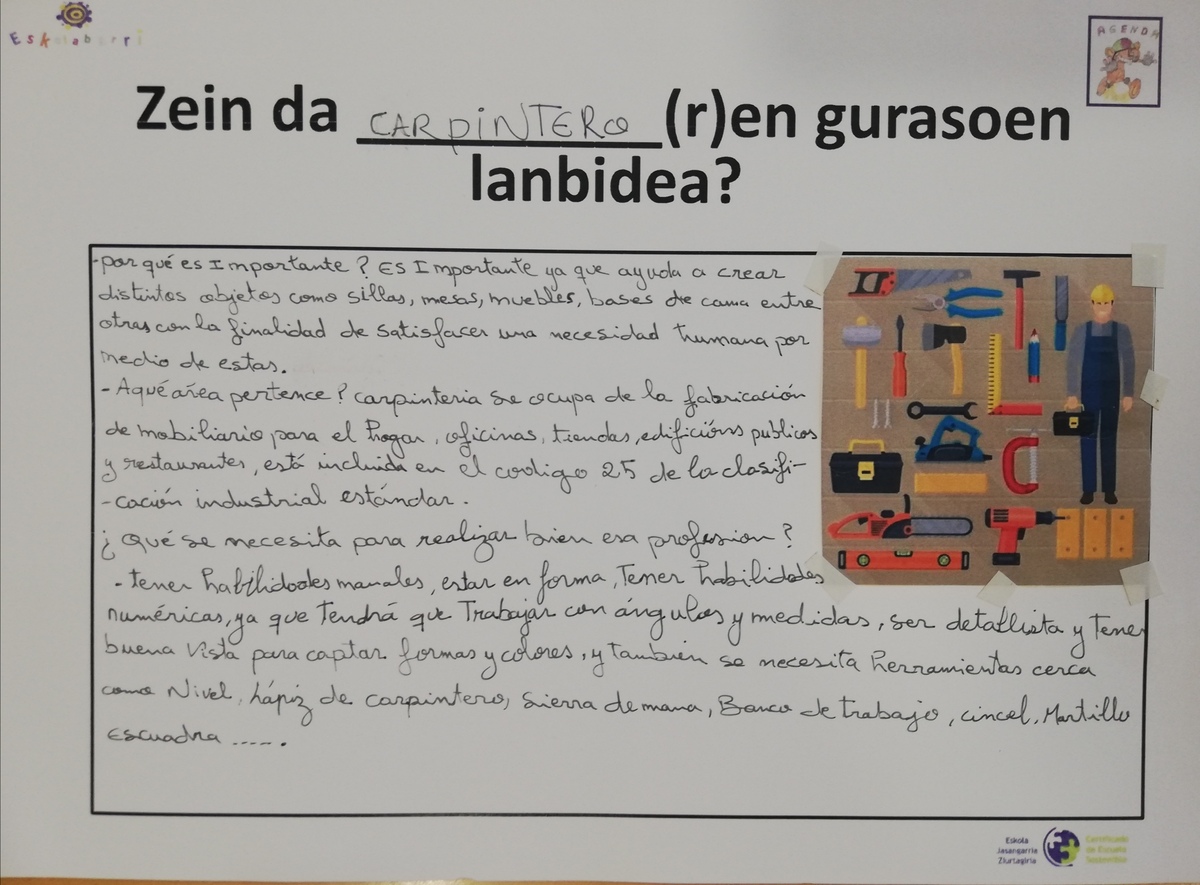 Eskolaberri
AGENDA
Zein da CARPINTERO (r)en gurasoen
lanbidea?
-por qué es Importante? Es Importante ya que ayuda a crear
distintos objetos como sillas, mesas, muebles, bases de cama entre
otras con la finalidad de satisfacer una necesidad humana por
medio de estas.
- Aqué área pertence? carpinteria se ocupa de la fabricación
de mobiliario para el hogar, oficinas, tiendas, edificions publicos
y restaurantes, está incluida en el codigo 25 de la clasifi-
-cación industrial estándar.
¿ Qué se necesita para realizar bien esa profesion?
- tener habilidades manuales, estar en forma, Tener habilidades
numéricas, ya que Tendrá que Trabajar con ángulos y medidas, ser detallista y Tener
buena vista para captar formas y colores, y también se necesita herramientas cerca
como Nivel, lápiz de carpintero, sierra de mana, Banco de trabajo, cincel, Martillo
Escuadra ..... .
Eskola
Jasangarria
Ziurtagiria
Certificado
de Escuela
Sostenible